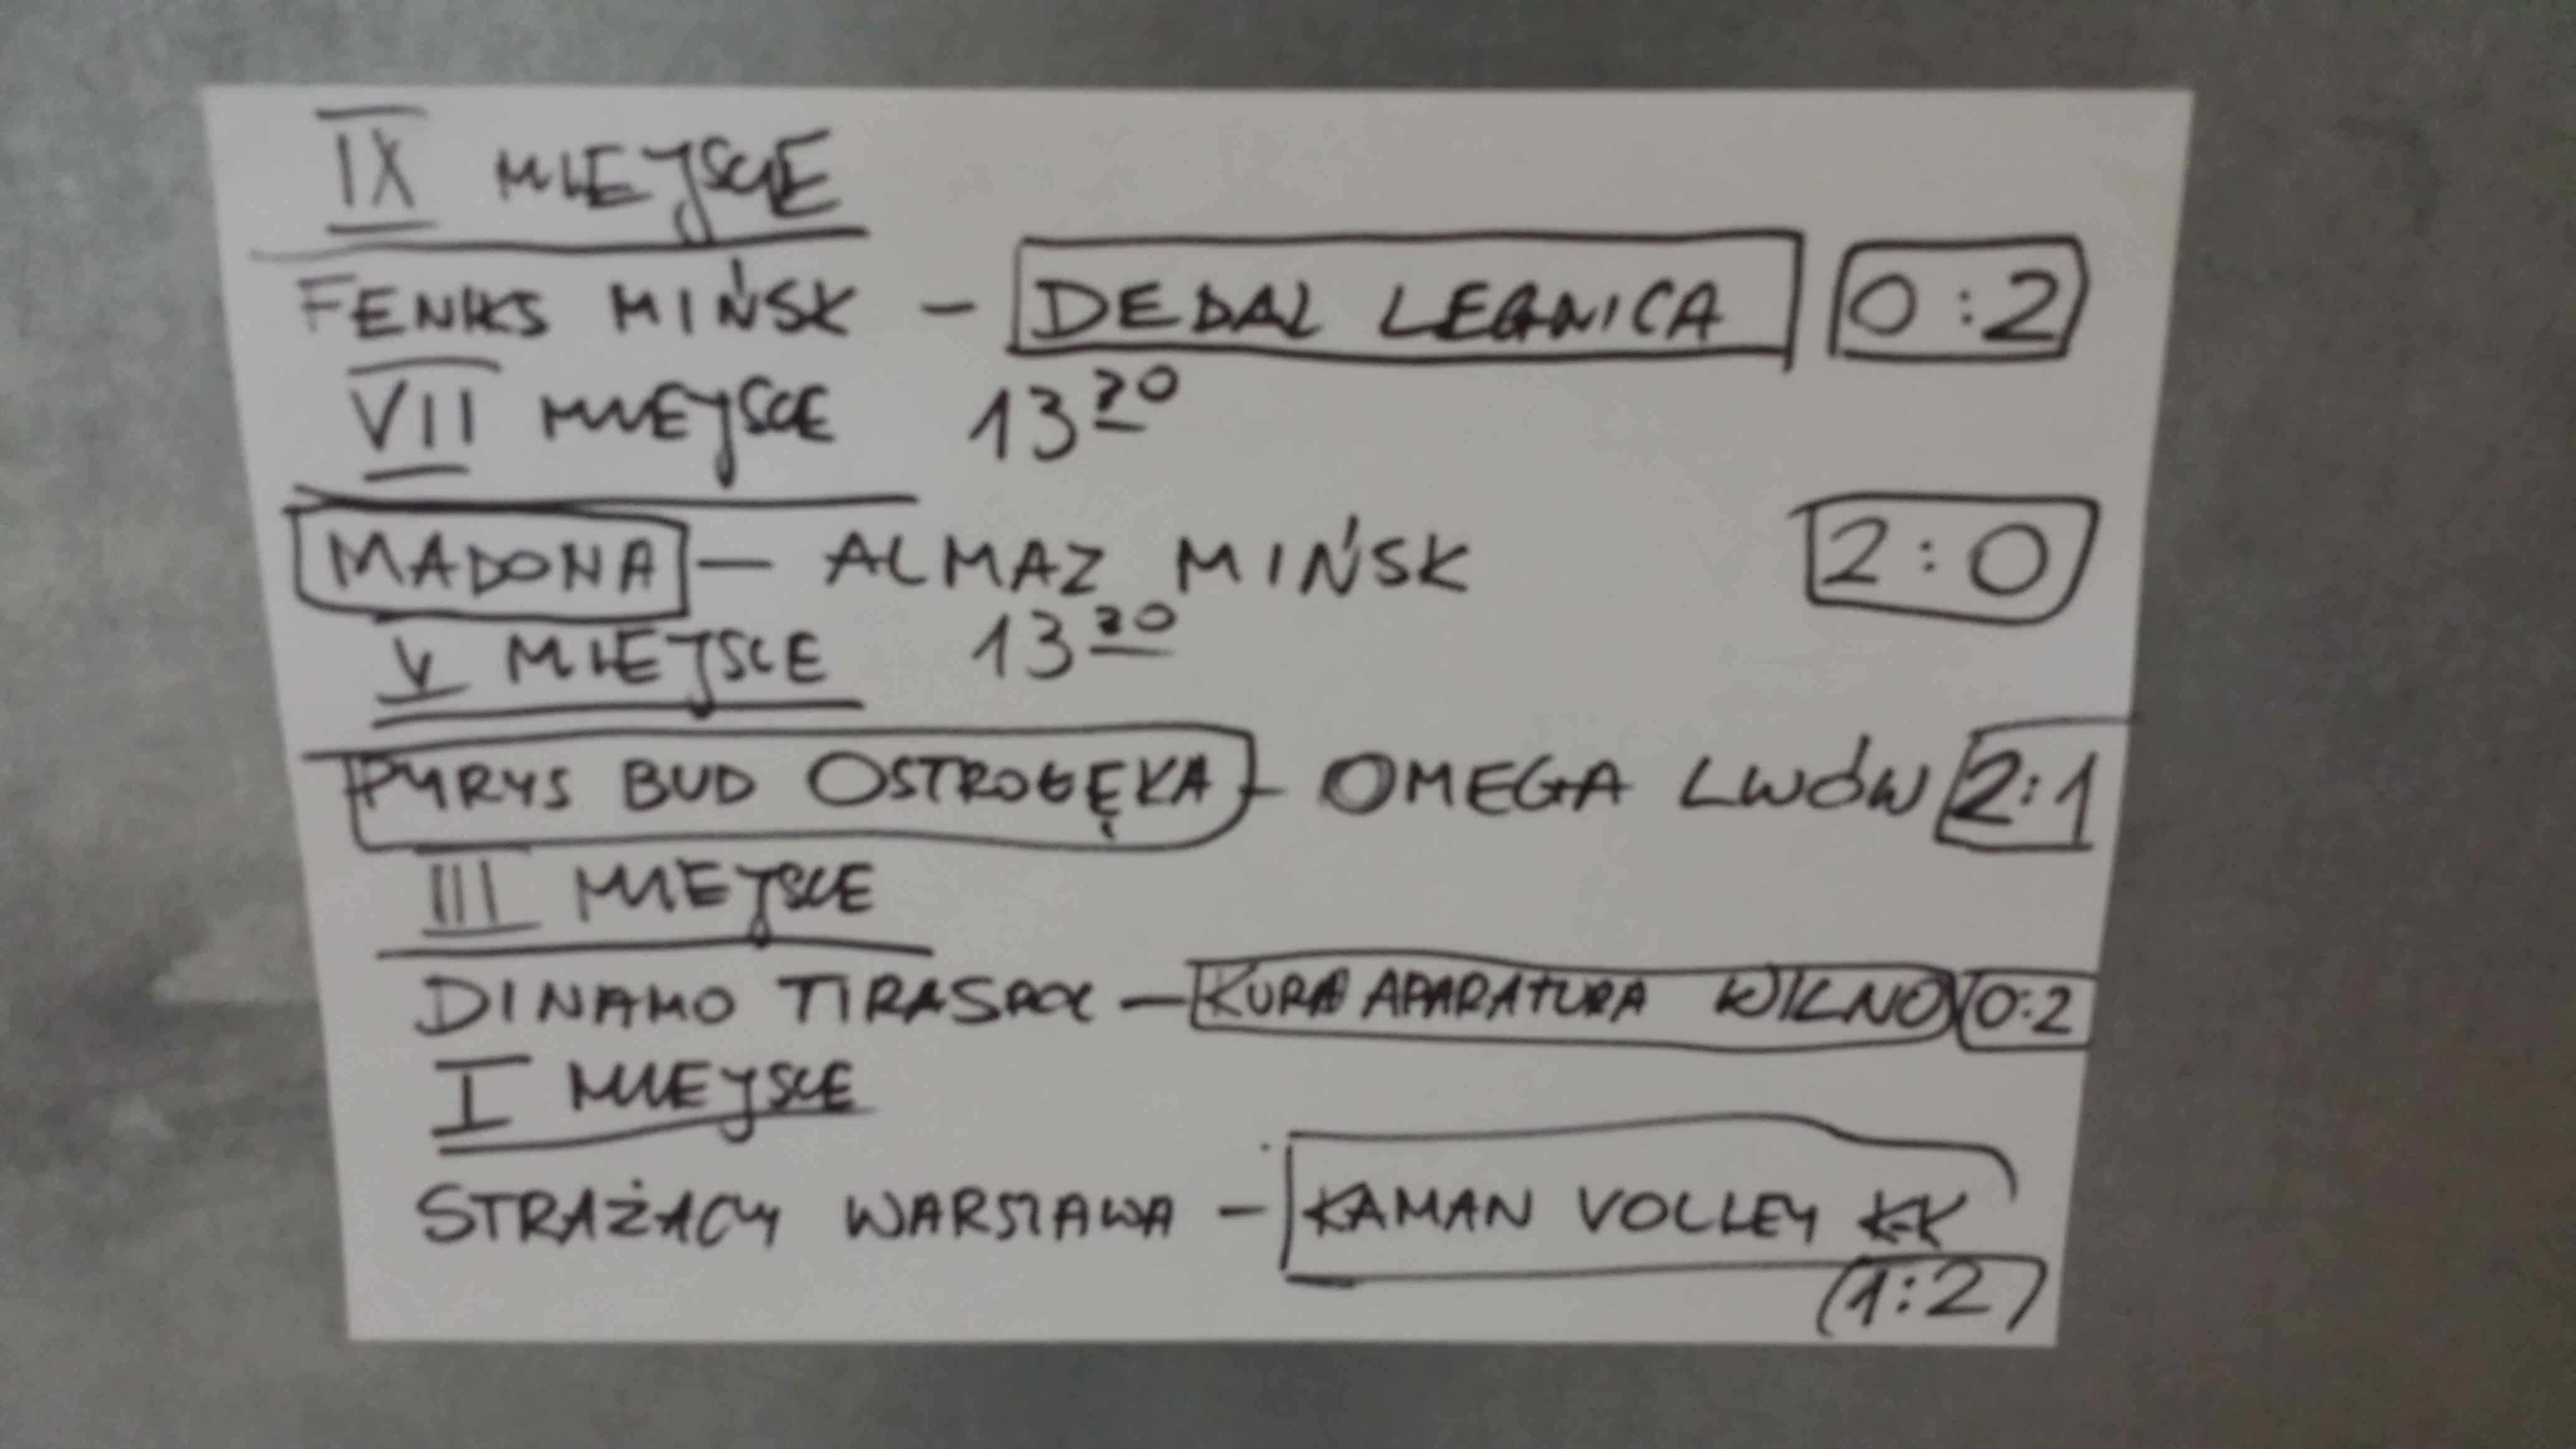 IX MIEJSCE
FENIKS MIŃSK - DEDAL LEGNICA 0:2
VII MIEJSCE 13 30
MADONA - ALMAZ MIŃSK 2:0
V MIEJSCE 13 30
PYRYS BUD OSTROŁĘKA - OMEGA LWÓW 2:1
III MIEJSCE
DINAMO TIRASPOL - KURA APARATURA WILNO 0:2
I MIEJSCE
STRAŻACY WARSZAWA - KAMAN VOLLEY K-K
1:2